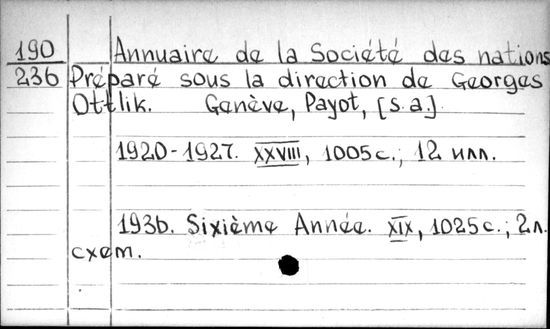 190 Annuaire de la Société des nations
236 Préparé sous la direction de Georges
Ottlik. Genève, Payot, [s.a.]
1920-1927. XXVIII, 1005 с.; 12 илл.
1936. Sixième Année. XIX, 1025 с.; 2 л.
схем.